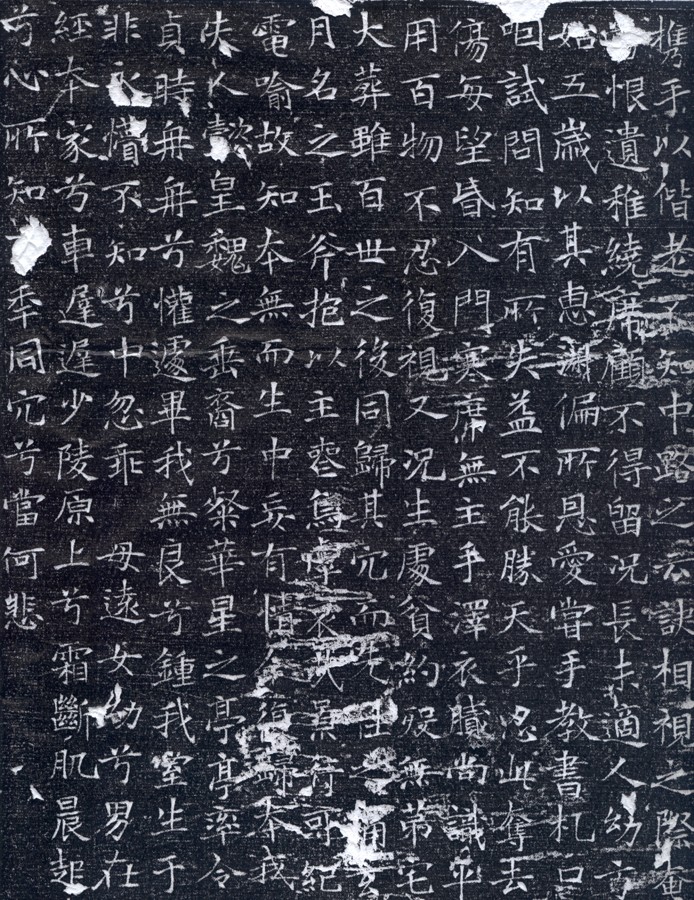 携手以偕老不知中路之云訣相視之際奄
恨遺稚繞席顧不得留况長未適人幼方
始五歲以其惠淑偏所恩愛嘗手教書札口
呬試問知有所失益不能勝天乎忍此奪去
傷每望昏入門寒席無主手澤衣膩尚識平
用百物不忍復視又况生處貧約殁無第宅
大葬雖百世之後同歸其穴而先往之痛玄
月名之玉斧抱以主喪烏虖哀哉景行可紀
電喻故知本無而生中妄有情今復歸本我
夫人懿皇魏之垂裔兮粲華星之亭亭率令
貞時冉冉兮懽遽畢我無良兮鍾我室生于
非永懵不知兮中忽乖 母遠女幼兮男在
經本家兮車遲遲少陵原上兮霜斷肌晨起
兮心所知百年同穴兮當何悲